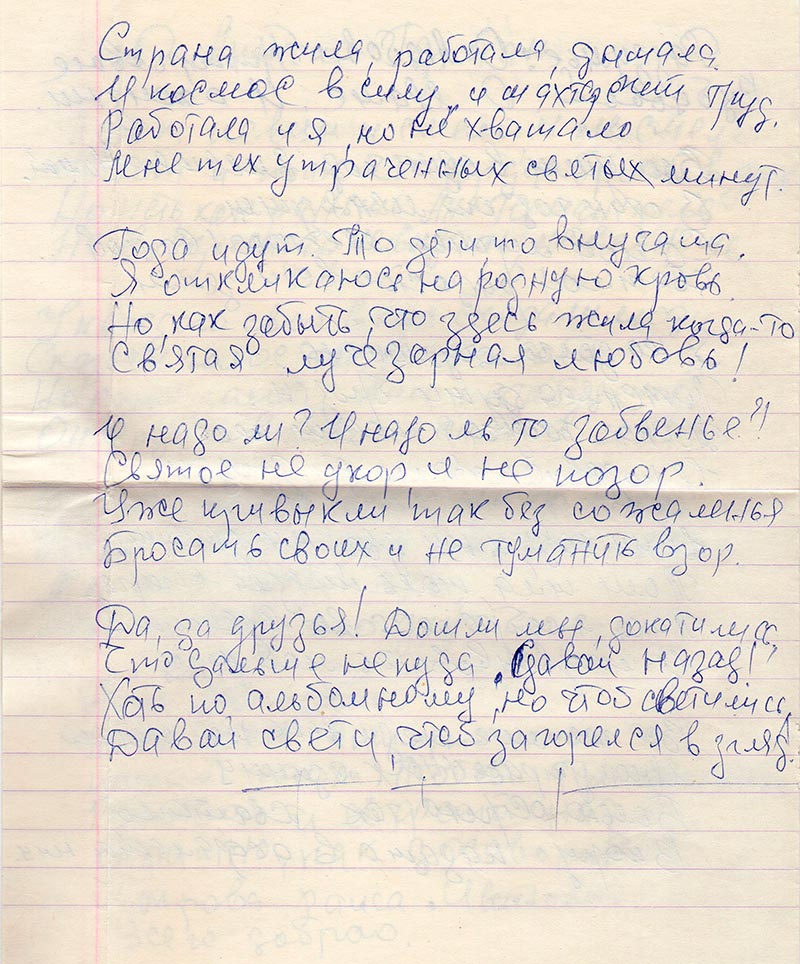 Страна жила, работала, дымала.
И космос в силу, и шахтерский труд.
Работала и я, но не хватало
Мне тех утраченных святых минут.
Года идут. То дети, то внучата.
Я откликаюсь на родную кровь.
Но, как забыть, что здесь жила когда-то
Святая лучезарная любовь!
И надо ли? И надо ль то забвенье?!
Святое не укор и не позор.
Уже привыкли так без сожаленья
Бросать своих и не туманить взор.
Да, да друзья! Дошли мы, докатились,
Что дальше некуда. Давай назад!
Хоть по альбомному, но чтоб светились.
Давай свету, чтоб загорелся взгляд!